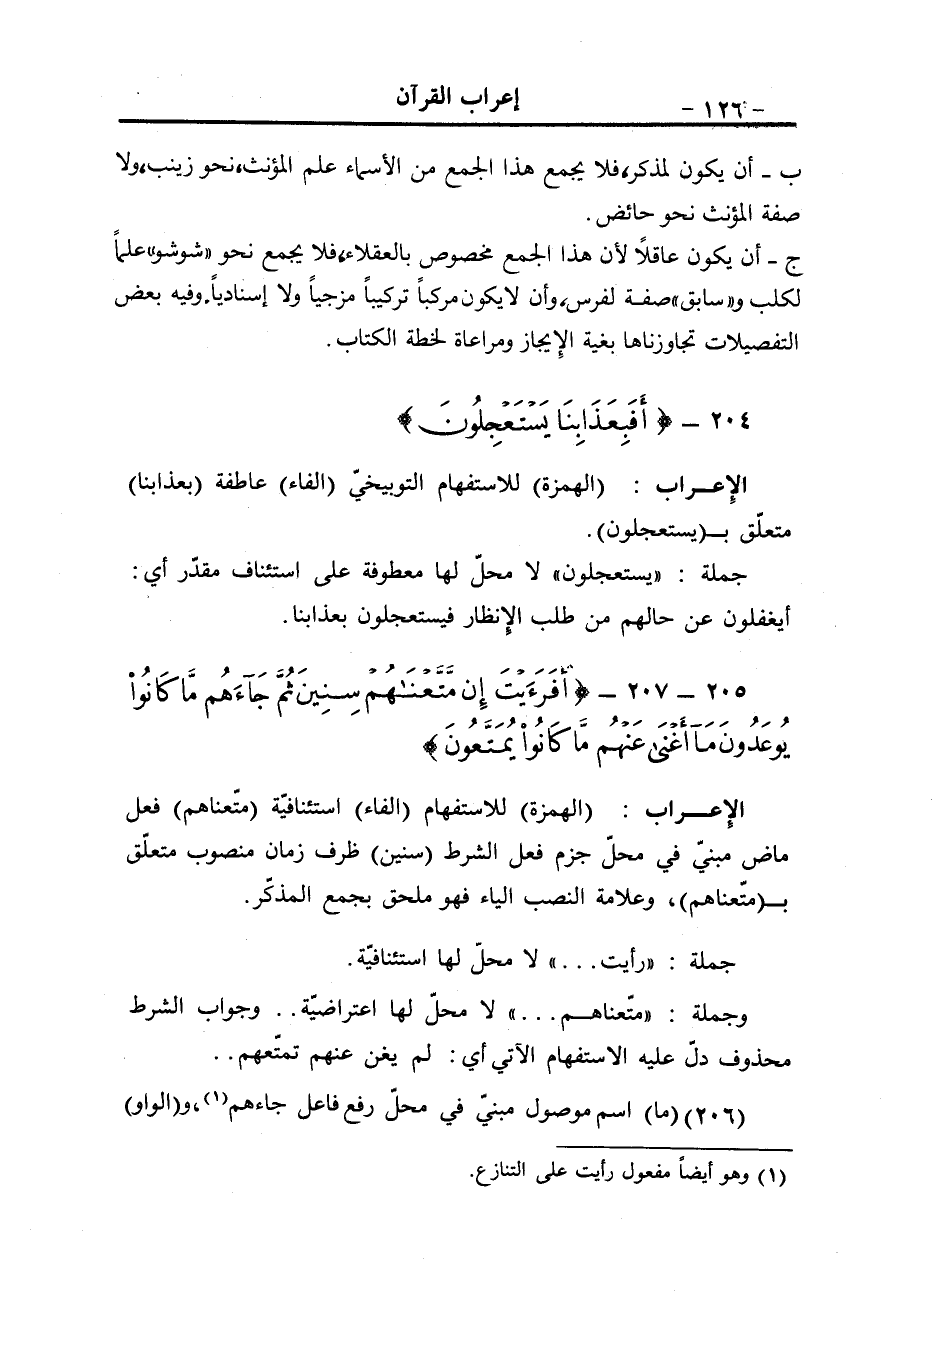 - ١٢٦ - إعراب القرآن
ب - أن يكون لمذكر، فلا يجمع هذا الجمع من الأسماء علم المؤنث، نحو زينب، ولا
صفة المؤنث نحو حائض.
ج - أن يكون عاقلاً لأن هذا الجمع مخصوص بالعقلاء، فلا يجمع نحو «شوشو» علماً
لكلب و«سابق» صفة لفرس، وأن لا يكون مركباً تركيباً مزجياً ولا إسنادياً. وفيه بعض
التفصيلات تجاوزناها بغية الإيجاز ومراعاة لخطة الكتاب.
٢٠٤ - ﴿ أَفَبِعَذَابِنَا يَسْتَعْجِلُونَ ﴾
الإعـراب : (الهمزة) للاستفهام التوبيخيّ (الفاء) عاطفة (بعذابنا)
متعلّق بـ(يستعجلون).
جملة : «يستعجلون» لا محلّ لها معطوفة على استئناف مقدّر أي:
أيغفلون عن حالهم من طلب الإنظار فيستعجلون بعذابنا.
٢٠٥ - ٢٠٧ - ﴿ أَفَرَءَيْتَ إِن مَّتَّعْنَٰهُمْ سِنِينَ ثُمَّ جَآءَهُم مَّا كَانُوا۟
يُوعَدُونَ مَآ أَغْنَىٰ عَنْهُم مَّا كَانُوا۟ يُمَتَّعُونَ ﴾
الإعـــراب : (الهمزة) للاستفهام (الفاء) استئنافيّة (متّعناهم) فعل
ماض مبنيّ في محلّ جزم فعل الشرط (سنين) ظرف زمان منصوب متعلّق
بـ(متّعناهم)، وعلامة النصب الياء فهو ملحق بجمع المذكّر.
جملة : «رأيت...» لا محلّ لها استئنافيّة.
وجملة : «متّعناهـم...» لا محلّ لها اعتراضيّة.. وجواب الشرط
محذوف دلّ عليه الاستفهام الآتي أي: لم يغن عنهم تمتّعهم..
(٢٠٦) (ما) اسم موصول مبنيّ في محلّ رفع فاعل جاءهم(١)، و(الواو)
(١) وهو أيضاً مفعول رأيت على التنازع.